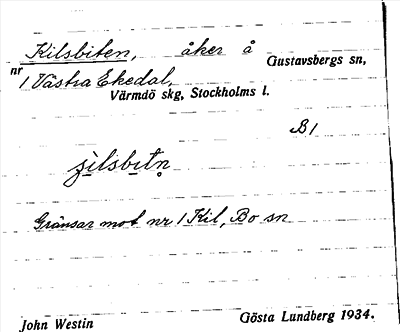 Kilsbiten, åker å Gustavsbergs sn,
nr 1 Västra Ekedal,
Värmdö skg, Stockholms l.
B1
Gränsar mot nr 1 Kil, Bo sn
John Westin Gösta Lundberg 1934.